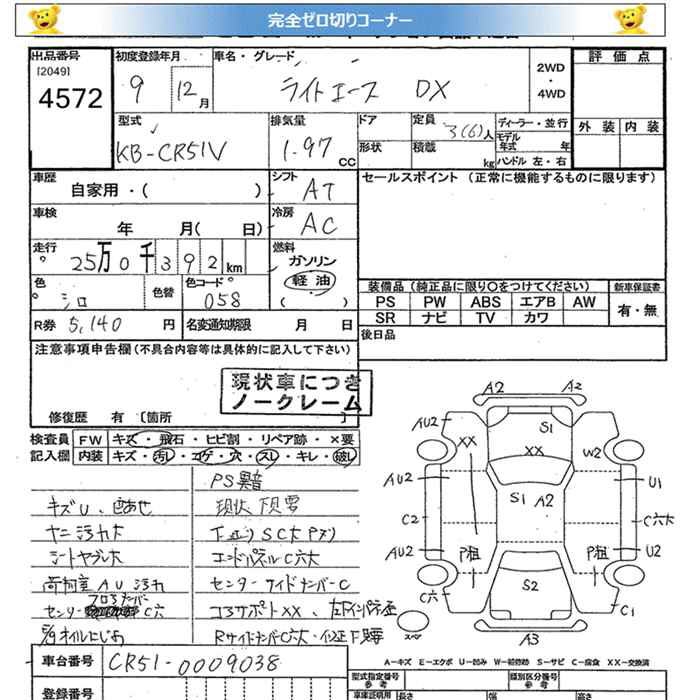 完全ゼロ切りコーナー
出品番号 初度登録年月 車名・グレード 評価点
[2049]
4572 9 12月 ライトエース DX 2WD・4WD
型式 排気量 ドア 定員 3(6)人 ディーラー・並行 外装 内装
KB-CR51V 1.97 CC 形状 積載 kg モデル年式 年
ハンドル 左・右
車歴 自家用・( ) シフト AT セールスポイント(正常に機能するものに限ります)
車検 年 月( 日) 冷房 AC
走行 25万0千392km 燃料 ガソリン
軽油
( )
色 シロ 色替 色コード 058 装備品(純正品に限り○をつけてください) 新車保証書
PS PW ABS エアB AW 有・無
SR ナビ TV カワ
R券 5,140 円 名変通知期限 月 日 後日品
注意事項申告欄(不具合内容等は具体的に記入して下さい)
現状車につき
ノークレーム
修復歴 有 [箇所 ]
検査員 FW キズ・飛石・ヒビ割・リペア跡・×要
記入欄 内装 キズ・汚レ・コゲ・穴・スレ・キレ・破レ
PS異音
キズU、色あせ
ヤニ汚れ大
シートヤブレ大
荷箱室AU汚れ
エンドパネルC六大
センターサイドメンバーC
コアサポートXX
車台番号 CR51-0009038
登録番号
A2 A2
AU2 S1
XX XX W2
AU2 S1 A2 U1
C2 C六大
AU2 P粗 P粗 U2
C六 S2 C1
スペア A3
A-キズ E-エクボ U-凹み W-補修跡 S-サビ C-腐食 XX-交換済
型式指定番号 参考 類別区分番号 参考
車庫証明用 長さ 幅 高さ